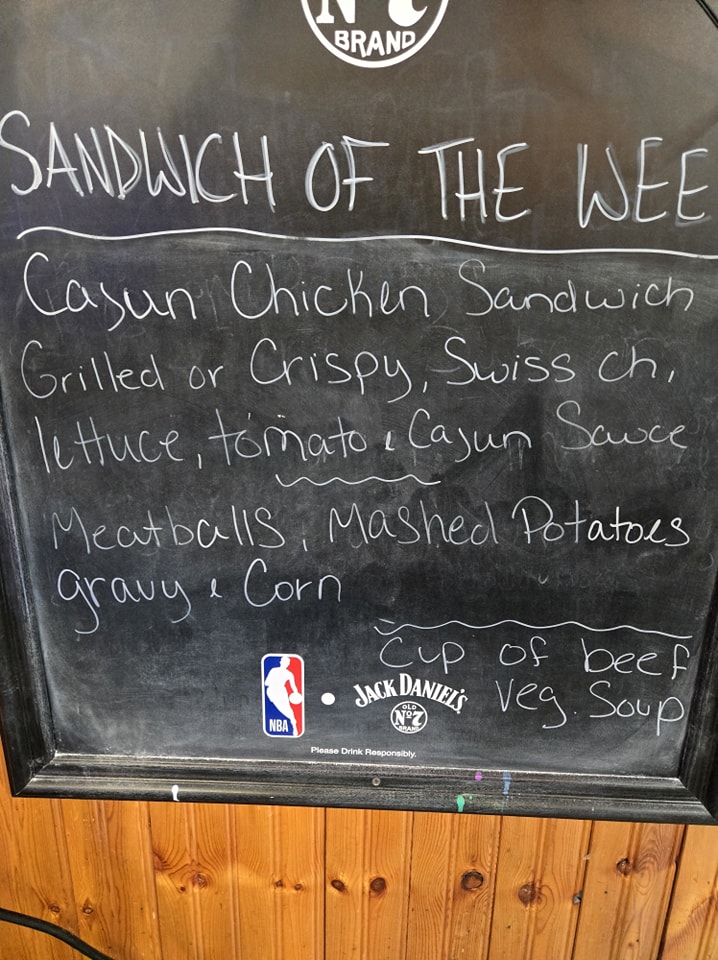 No 7
BRAND
SANDWICH OF THE WEE
Cajun Chicken Sandwich
Grilled or Crispy, Swiss ch,
lettuce, tomato & Cajun Sauce
Meatballs, Mashed Potatoes
gravy & Corn
Cup of beef
Veg. Soup
NBA
JACK DANIEL'S
OLD
No 7
BRAND
Please Drink Responsibly.